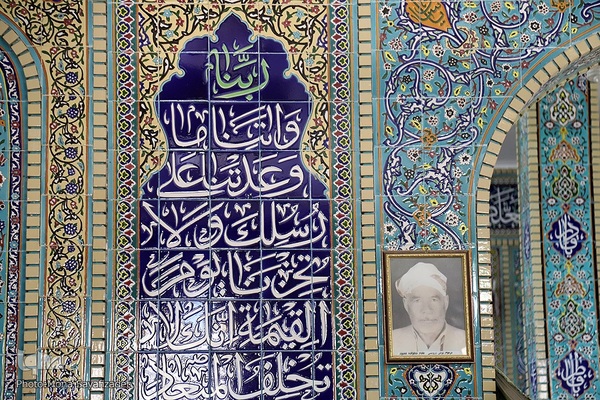 رَبَّنا
وَاتِنا ما
وَعَدْتَنا عَلى
رُسُلِكَ وَلا
تُخْزِنا يَوْمَ
الْقِيمَةِ اِنَّكَ لا
تُخْلِفُ الْميعادَ
Photo:Mona